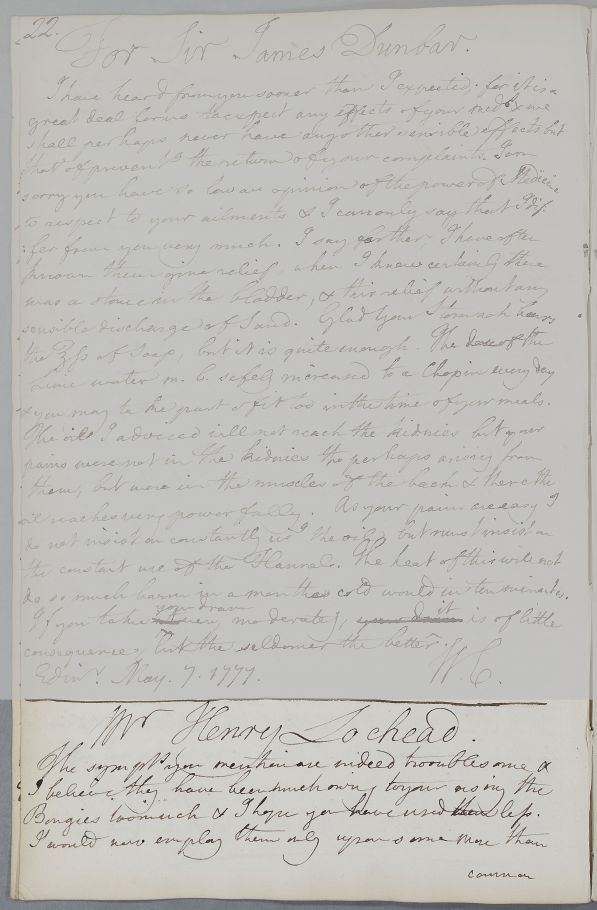 22.
For Sir James Dunbar.
I have heard from you sooner than I expected; for it is a
great deal too soon to expect any effects of your meds. & we
shall perhaps never have any other sensible effects but
that of preventg. the return of your complaints. I am
sorry you have so low an opinion of the power of Medicine
to respect to your ailments & I can only say that I dif-
:fer from you very much. I say farther, I have often
known them give relief, when I knew certainly there
was a stone in the bladder, & this relief without any
sensible discharge of Sand. Glad your Stomach bears
the ℥ss of Soap, but it is quite enough. The dose of the
Lime water m. b. safely increased to a Chopin every day
& you may take part of it too in the time of your meals.
The oils I advised will not reach the kidnies but your
pains were not in the kidnies tho perhaps arising from
them, but were in the muscles of the back & there the
oil reaches very powerfully. As your pains are easy I
do not insist on constantly usg. the oils, but must insist on
the constant use of the Flannel. The heat of this will not
do so much harm in a month as cold would in ten minutes.
If you take your dram very moderately, it is of little
consequence, but the seldomer the better.
Edinr. May. 7. 1777. W. C.
Mr Henry Lochead.
The sympts. you mention are indeed troublesome &
I believe they have been much owing to your using the
Bougies too much & I hope you have used them less.
I would now employ them only upon some more than
common